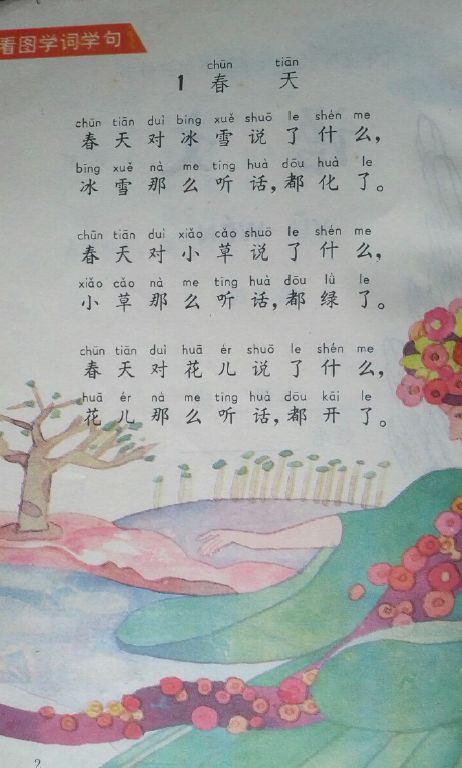 看图学词学句
chūn tiān
1 春 天
chūn tiān duì bīng xuě shuō le shén me
春天对冰雪说了什么，
bīng xuě nà me tīng huà dōu huà le
冰雪那么听话，都化了。
chūn tiān duì xiǎo cǎo shuō le shén me
春天对小草说了什么，
xiǎo cǎo nà me tīng huà dōu lǜ le
小草那么听话，都绿了。
chūn tiān duì huā ér shuō le shén me
春天对花儿说了什么，
huā ér nà me tīng huà dōu kāi le
花儿那么听话，都开了。
2